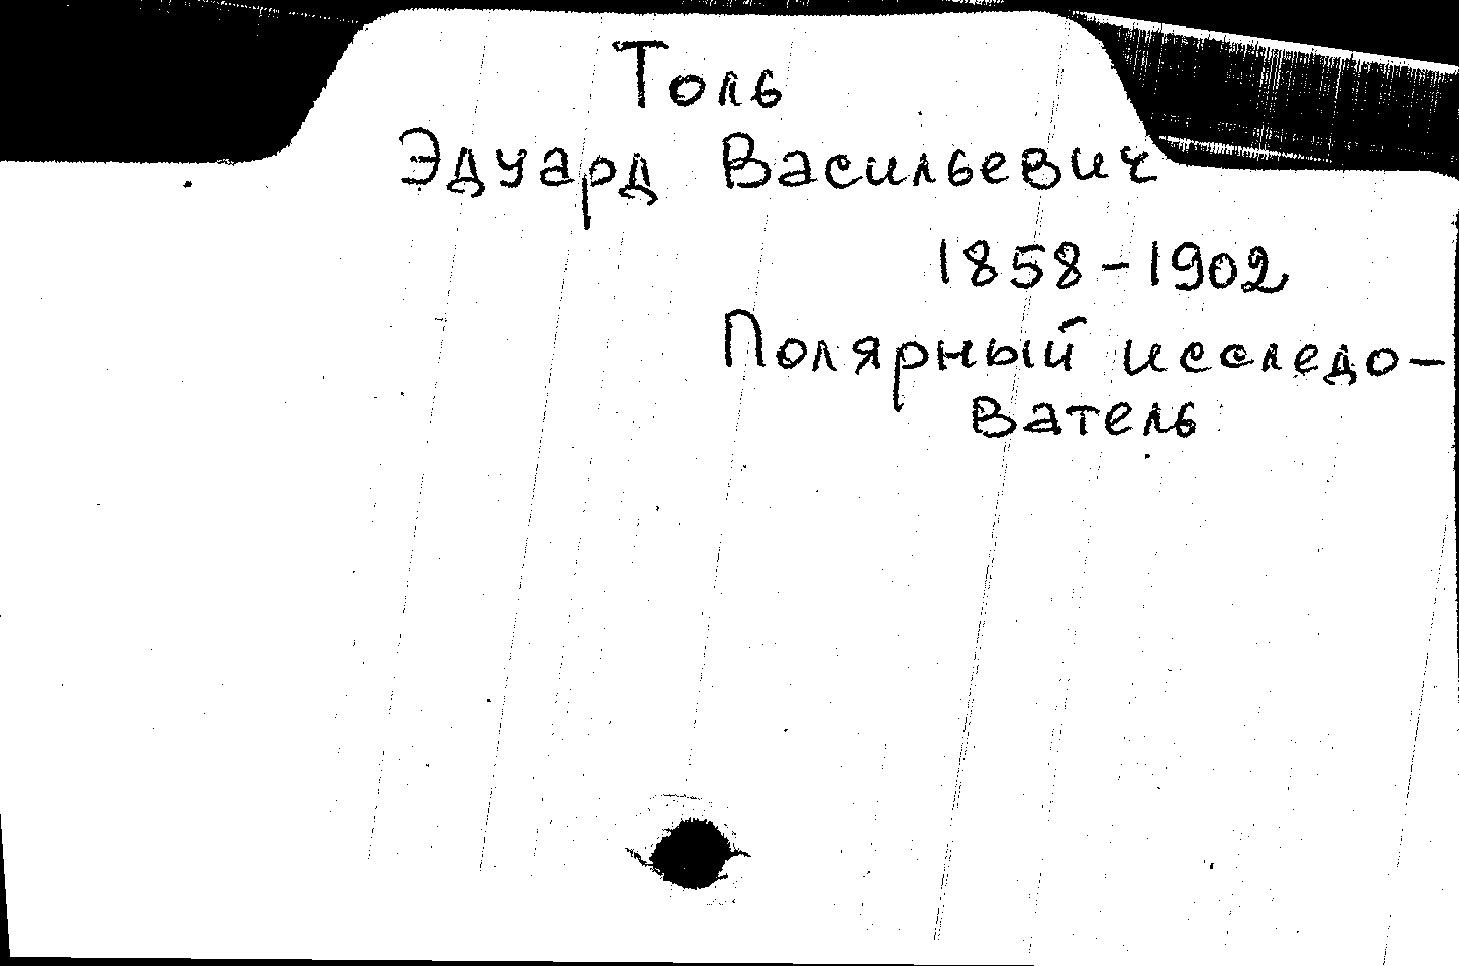 Толь
Эдуард Васильевич
1858-1902
Полярный исследо-
ватель